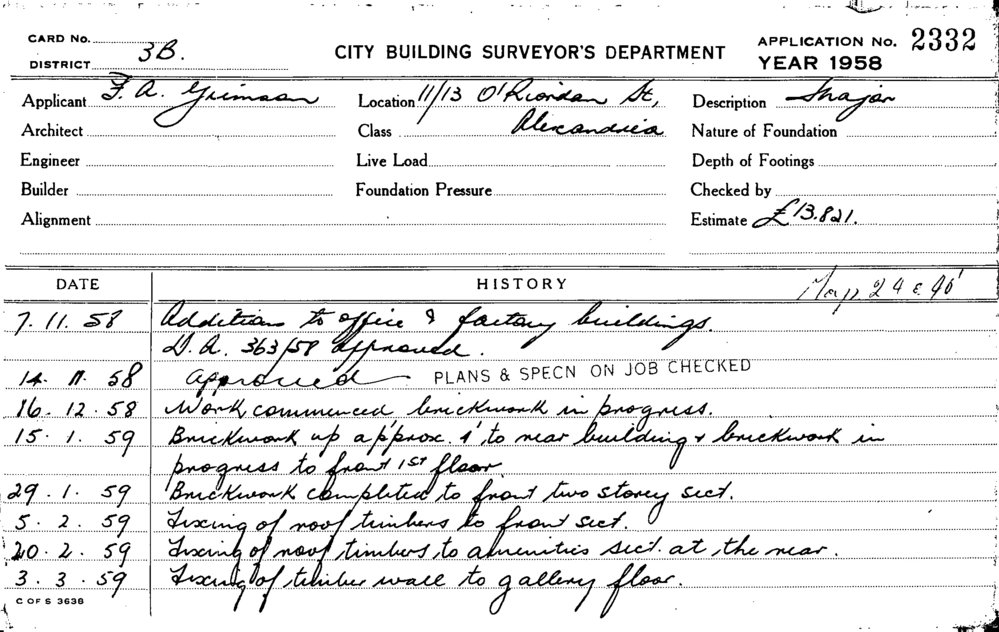 CARD No.
DISTRICT 3B.
CITY BUILDING SURVEYOR'S DEPARTMENT
APPLICATION No. 2332
YEAR 1958
Applicant F. A. Grimson Location 11/13 O'Riordan St, Description
Architect Class Alexandria Nature of Foundation
Engineer Live Load Depth of Footings
Builder Foundation Pressure Checked by
Alignment Estimate £13.821.
DATE HISTORY Map 24
7. 11. 58 Additions to office & factory buildings
D.A. 363/58 approved.
14. 11. 58 approved PLANS & SPECN ON JOB CHECKED
16. 12. 58 Work commenced brickwork in progress.
15. 1. 59 Brickwork up approx. to rear building & brickwork in
progress to front 1ST floor
29. 1. 59 Brickwork completed to front two storey sect.
5. 2. 59 Fixing of roof timbers to front sect.
20. 2. 59 Fixing of roof timbers to amenities sect. at the rear.
3. 3. 59 Fixing of timber wall to gallery floor.
C OF S 3638